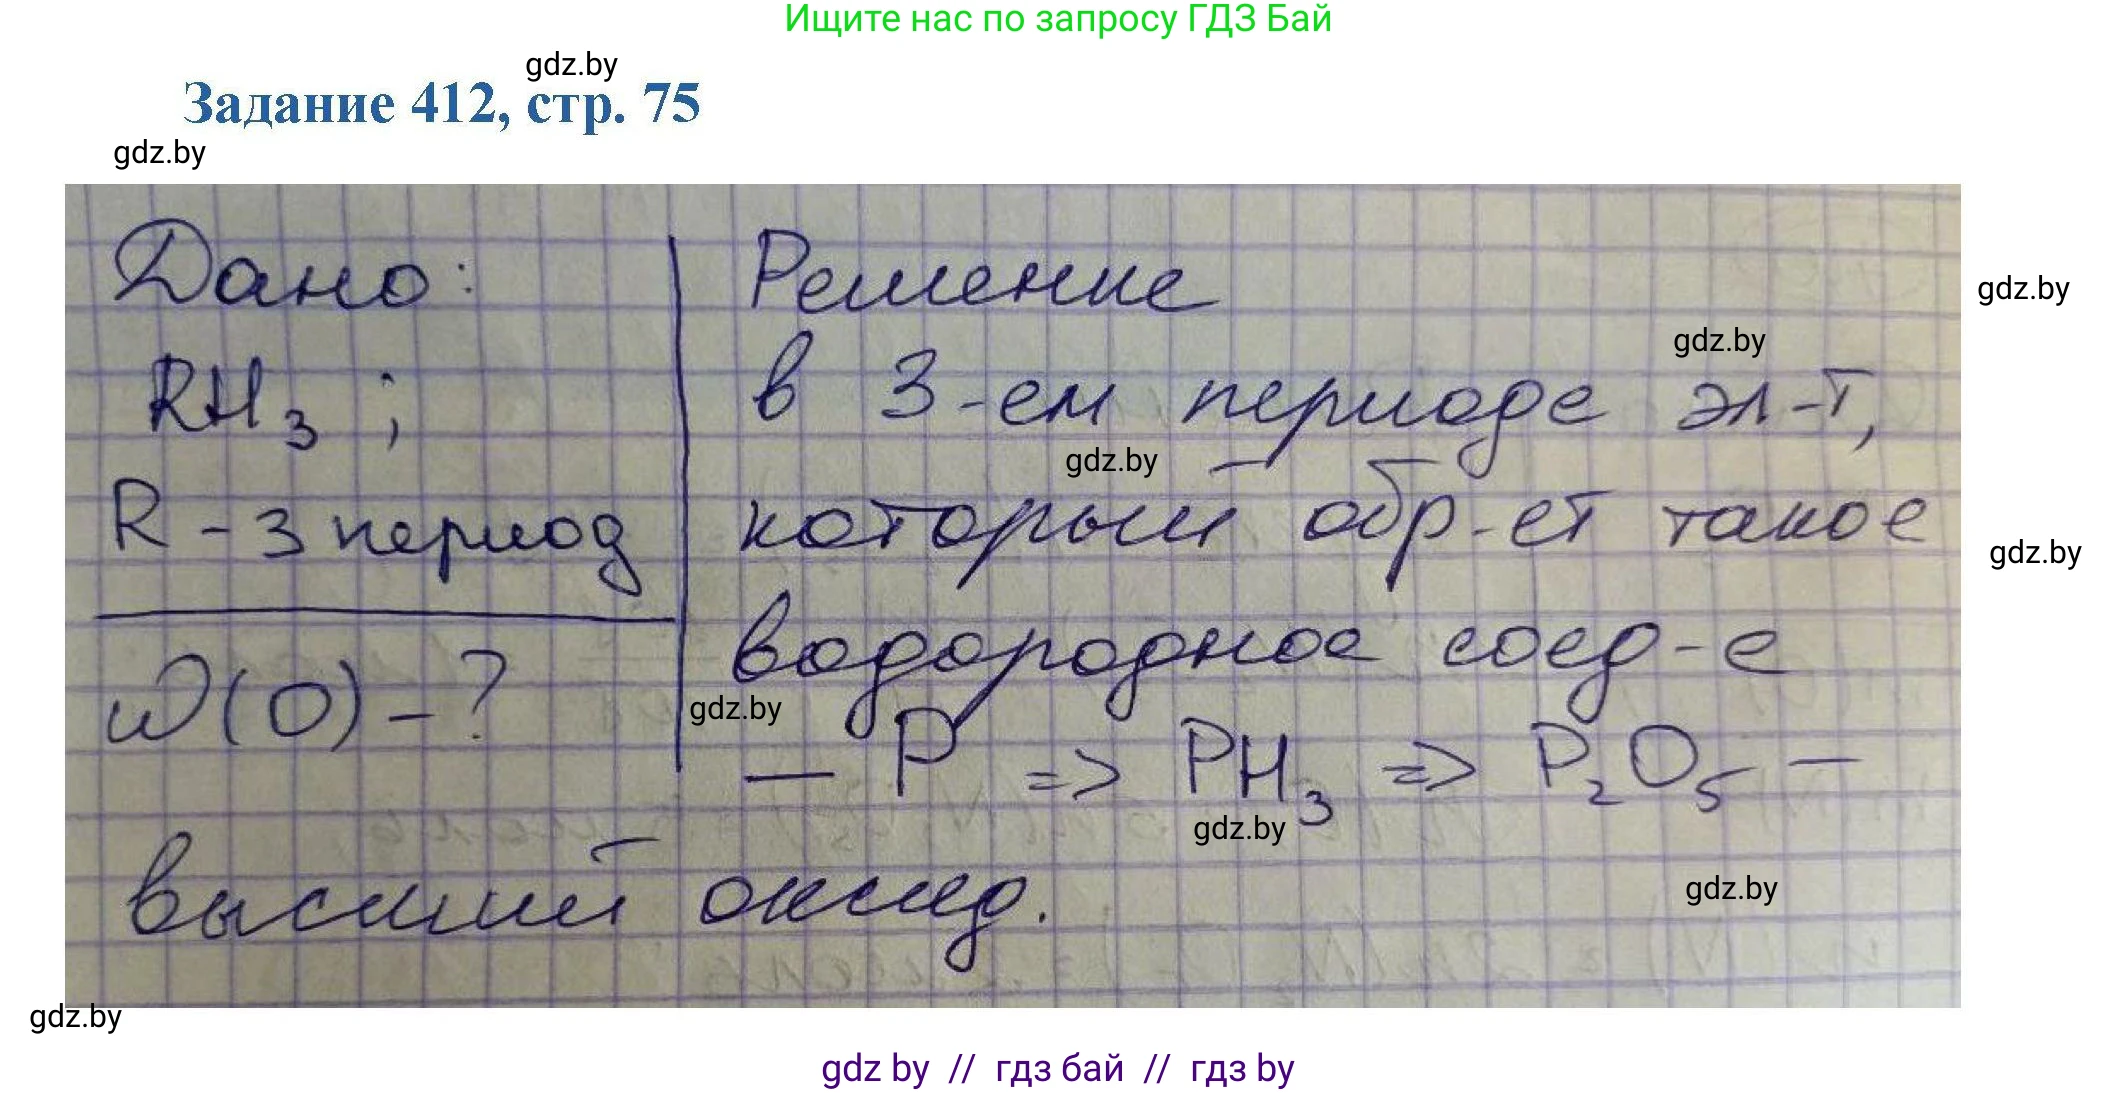 Ищите нас по запросу ГДЗ Бай
gdz.by
Задание 412, стр. 75
gdz.by
Дано:
RH3 ;
R - 3 период
W(O) - ?
Решение
gdz.by
gdz.by
в 3-ем периоде эл-т,
gdz.by
который обр-ет такое
gdz.by
водородное соед-е
gdz.by
— P => PH3 => P2O5 —
gdz.by
высший оксид.
gdz.by
gdz.by
gdz by // гдз бай // гдз by